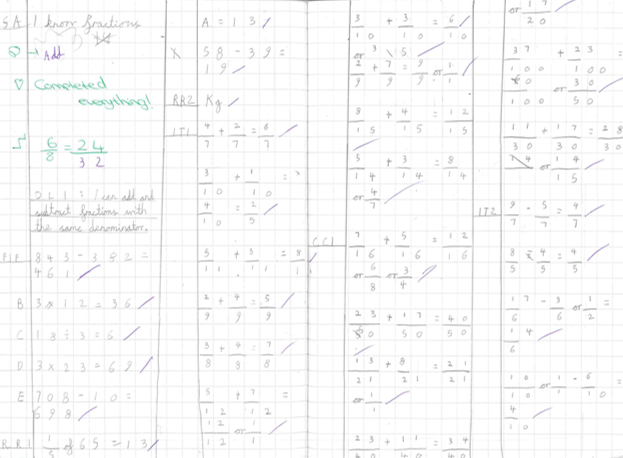 SA I know fractions
Add
Completed
everything!
6/8 = 24/32
OLI: I can add and
subtract fractions with
the same denominator.
843 - 382 =
461
B 3 x 12 = 36
C 18 ÷ 3 = 6
D 3 x 23 = 69
E 708 - 10 =
698
RR1 1/5 of 65 = 13
A = 13
58 - 39 =
19
RR2 Kg
IT1 4/7 + 2/7 = 6/7
3/10 + 1/10 =
4/10 = 2/5
5/11 + 3/11 = 8/11
3/8 + 4/8 = 7/8
5/12 + 7/12 =
12/12 or 1/1
3/10 + 3/10 = 6/10
or 3/5
2/9 + 7/9 = 9/9 or 1/1
8/15 + 4/15 = 12/15
5/14 + 3/14 = 8/14
or 4/7
CC1 7/16 + 5/16 = 12/16
or 6/8 or 3/4
23/50 + 17/50 = 40/50
13/21 + 8/21 = 21/21
or 1/1
23/40 + 11/40 = 34/40
or 17/20
37/100 + 23/100
or 30/50
11/30 + 17/30 = 28/30
or 14/15
IT2 9/7 - 5/7 = 4/7